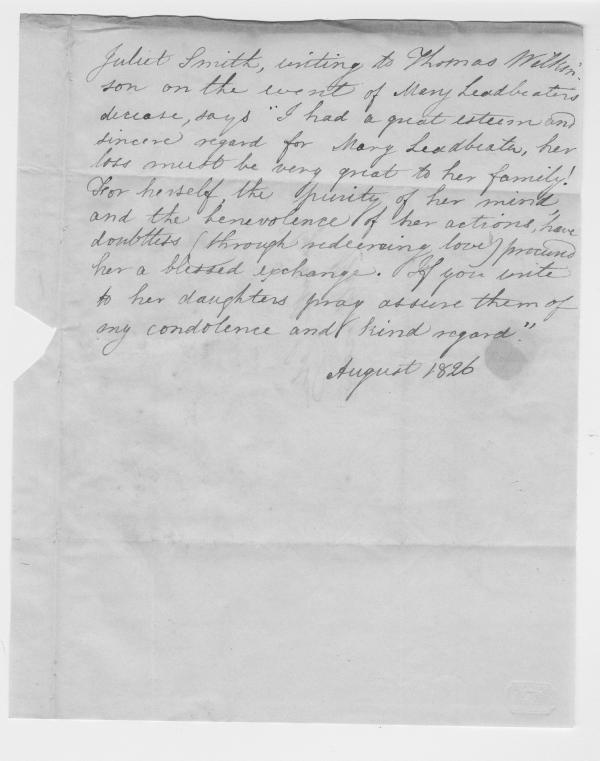 Juliet Smith, writing to Thomas Wilkin-
son on the event of Mary Leadbeaters
decease, says "I had a great esteem and
sincere regard for Mary Leadbeater, her
loss must be very great to her family!
For herself, the purity of her mind
and the benevolence of her actions, have
doubtless (through redeeming love) procured
her a blessed exchange. If you write
to her daughters pray assure them of
my condolence and kind regard."
August 1826